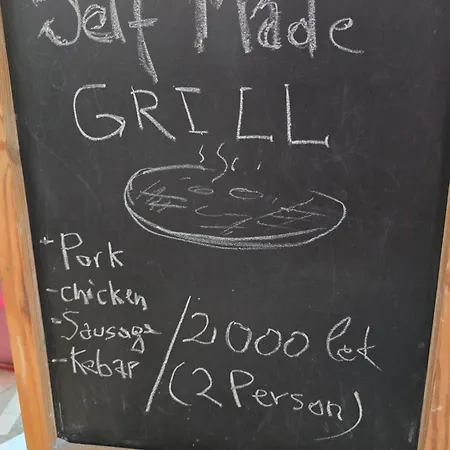 Self Made
GRILL
- Pork
- chicken
- Sausage
- Kebap
/ 2000 lek
(2 Person)